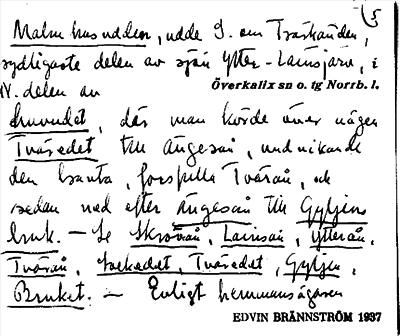 5
Malmhusudden, udde S. om Träskänden, i
sydligaste delen av sjön Ytter-Lainsjärv, i
N. delen av Överkalix sn o. tg Norrb. l.
huvudet, där man körde över någon
Tväredet till Ängesån, undvikande
den branta, forsfyllda Tvärån, och
sedan ned efter Ängesån till Gyljens
bruk. — Se Skrövån, Lainsån, Ytterån,
Tvärån, Tväredet, Gyljen,
Bruket. — Enligt hemmansägaren
EDVIN BRÄNNSTRÖM 1937